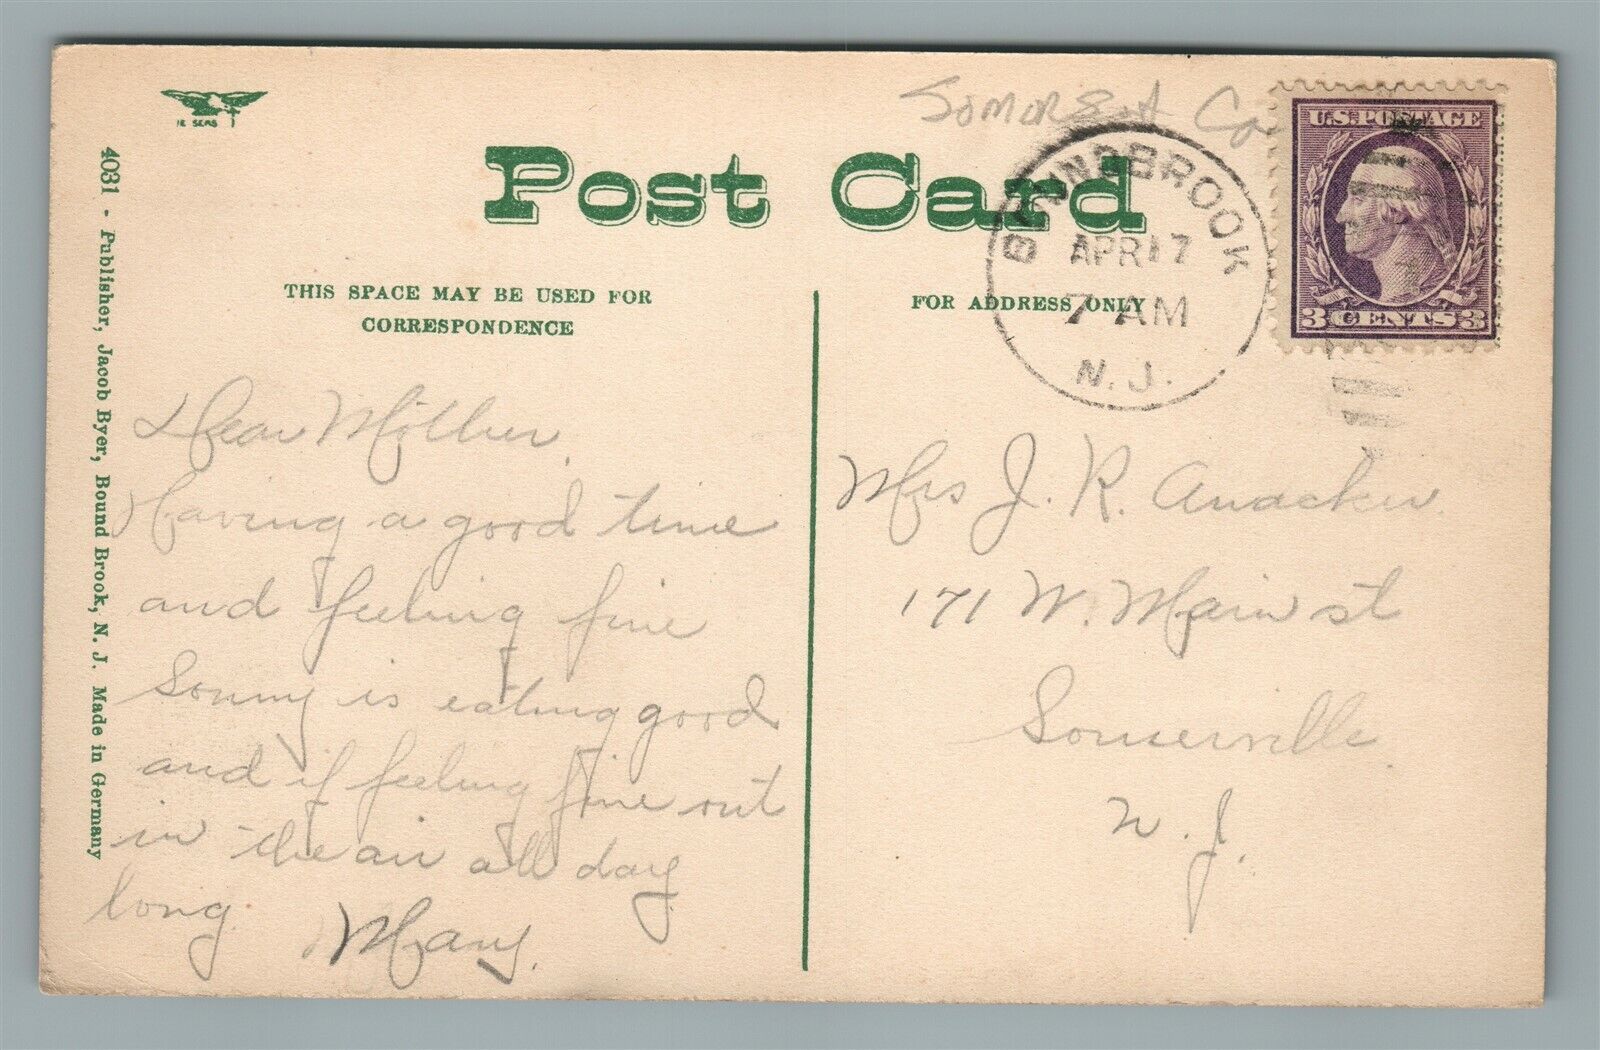 Somerset Co
Post Card
U.S. POSTAGE
3 CENTS 3
BOUNDBROOK
APR 17
7 AM
N. J.
THIS SPACE MAY BE USED FOR
CORRESPONDENCE
FOR ADDRESS ONLY
4031 - Publisher, Jacob Byer, Bound Brook, N. J. Made in Germany
Dear Mother,
Having a good time
and feeling fine
Sonny is eating good
and if feeling fine out
in the air all day
long.
Mary.
Mrs J. R. Anacker.
171 W. Main st
Somerville.
N. J.